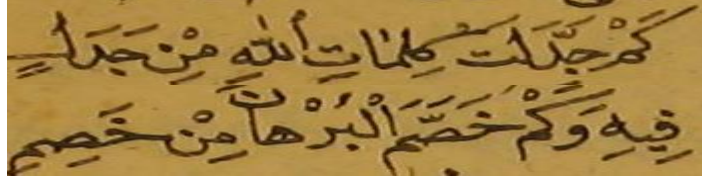 كَمْ جَدَّلَتْ كَلِمَاتُ اللهِ مِنْ جَدَلٍ
فِيهِ وَكَمْ خَصَّمَ الْبُرْهَانُ مِنْ خَصِمِ